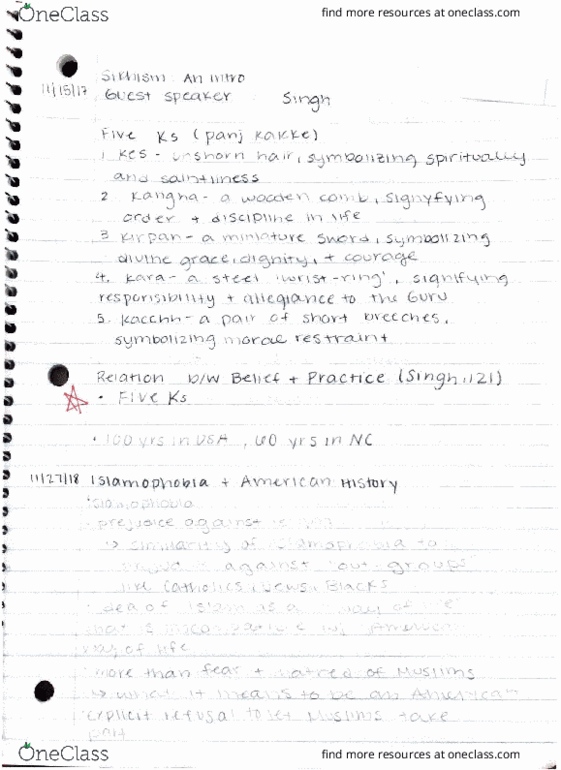 OneClass
find more resources at oneclass.com
Sikhism: An intro
11/15/17 Guest Speaker Singh
Five Ks (panj kakke)
1. Kes - unshorn hair, symbolizing spiritually
and saintliness
2. Kangha - a wooden comb, signyfying
order + discipline in life
3. Kirpan - a miniature sword, symbolizing
divine grace, dignity, + courage
4. Kara - a steel 'wrist-ring', signifying
responsibility + allegiance to the Guru
5. Kacchh - a pair of short breeches,
symbolizing moral restraint
Relation b/w Belief + Practice (Singh, 121)
• Five Ks
• 100 yrs in USA, 60 yrs in NC
11/27/18 Islamophobia + American History
Islamophobia
prejudice against
↳ similarity of islamophobia to
against "out-groups"
like Catholics, Jews, Blacks
idea of Islam as a "way of life"
that is incompatible w/ American
way of life
more than fear + hatred of Muslims
↳ what it means to be an American
explicit refusal to let Muslims take
part
OneClass
find more resources at oneclass.com